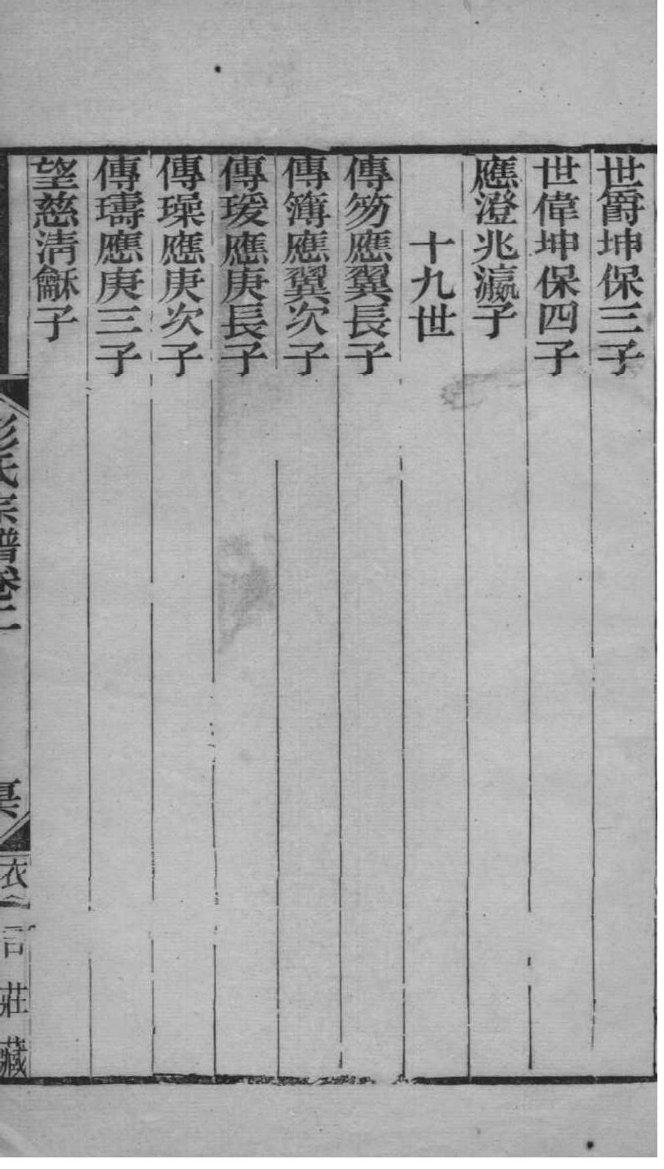 世爵坤保三子
世偉坤保四子
應澄兆瀛子
十九世
傳笏應翼長子
傳簿應翼次子
傳瑗應庚長子
傳璪應庚次子
傳璹應庚三子
望慈清龢子
彭氏宗譜卷二
衣言莊藏